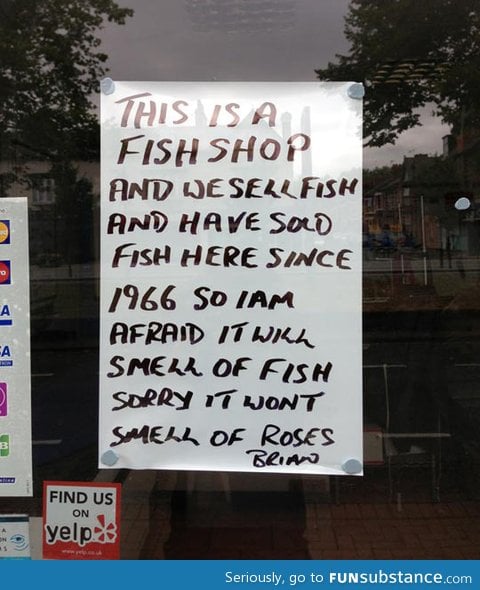 THIS IS A
FISH SHOP
AND WE SELL FISH
AND HAVE SOLD
FISH HERE SINCE
1966 SO I AM
AFRAID IT WILL
SMELL OF FISH
SORRY IT WONT
SMELL OF ROSES
BRIAN
FIND US
ON
yelp
www.yelp.co.uk
Seriously, go to FUNsubstance.com